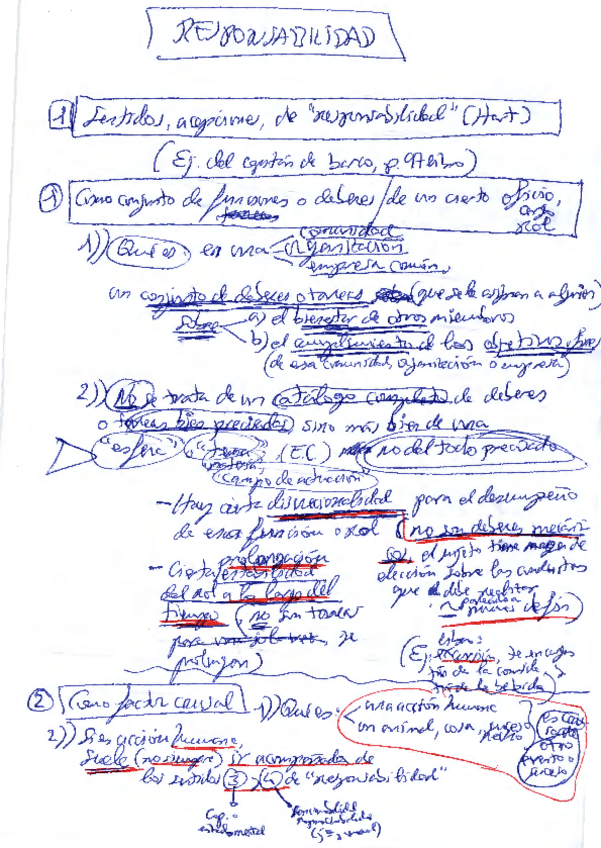 RESPONSABILIDAD
1 Sentidos, acepciones, de "responsabilidad" (Hart)
(Ej. del capitán de barco, p. 97 libro)
1 Como conjunto de funciones o deberes de un cierto oficio,
rol
1)) Qué es: en una
comunidad
organización
empresa común,
un conjunto de deberes o tareas (que se le asignan a alguien)
sobre
a) el bienestar de otros miembros
b) el cumplimiento de los objetivos, fines
(de esa comunidad, organización o empresa)
2)) No se trata de un catálogo completo de deberes
o tareas bien precisadas sino más bien de una
"esfera", (E.C.) no del todo precisado
"campo de actuación"
- Hay cierta discrecionalidad para el desempeño
de esa función o rol (no son deberes
el sujeto tiene margen de
elección sobre las conductas
que debe realizar
- Cierta estabilidad
prolongación
del rol a lo largo del
tiempo (no son tareas
para se
prolongan)
(Ej. excursión, se encarga
de la comida,
de la bebida)
2 Como factor causal 1)) Qué es:
una acción humana
un animal, cosa, suceso
es causa
de otro
evento o
suceso
2)) Si es acción humana,
suele (no siempre) ir acompañada de
los sentidos 3 y 4 de "responsabilidad"
Cap. o
estado mental